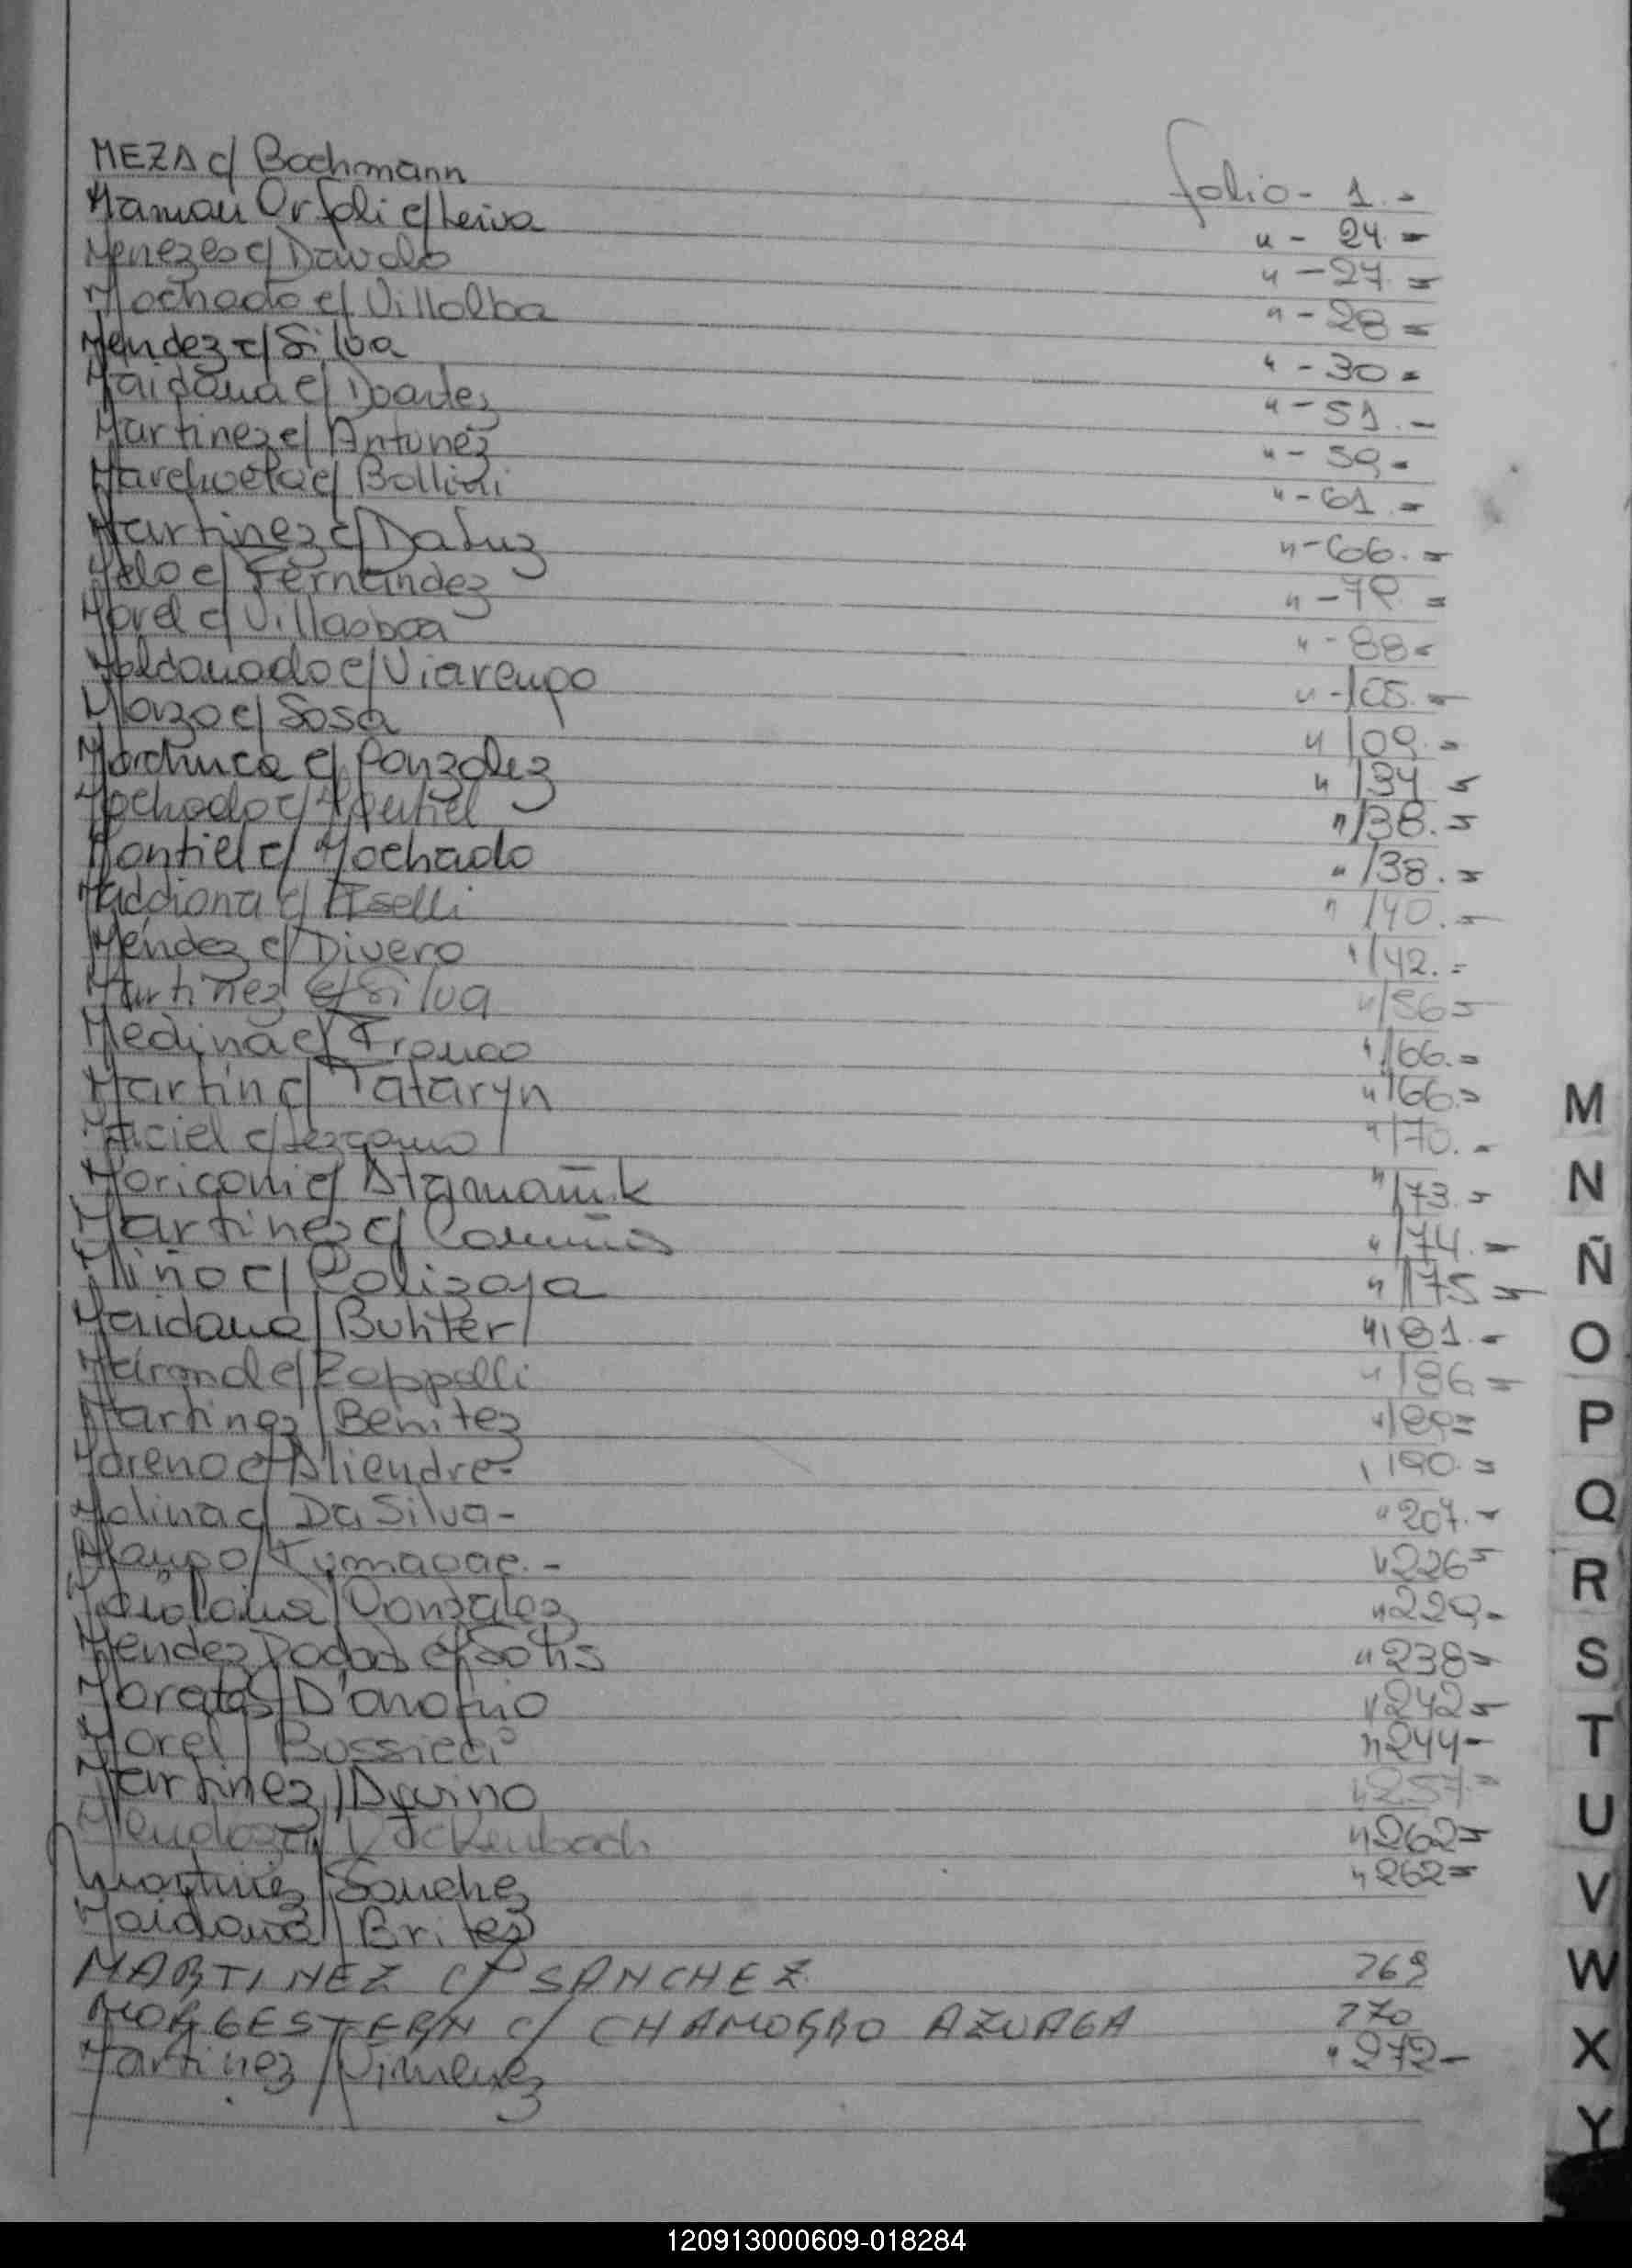 MEZA c/ Bachmann folio - 1.-
Maman Orfali c/ Leiva " - 24.=
Menezes c/ Davalo " - 27.=
Machado c/ Villalba " - 28=
Mendez c/ Silva " - 30=
Maidana c/ Duarte " - 51.-
Martinez c/ Antunez " - 59.-
c/ Bollini " - 61.=
Martinez c/ DaLuz " - 66.=
Melo c/ Fernández =
Morel c/ Villasboa " - 88=
Maldonado c/ Viarengo " - 105.=
c/ Sosa " 109.=
Machuca c/ Gonzalez " 134=
Machado c/ Montiel " 138.=
Montiel c/ Machado " 138.=
c/ Aselli " 140.=
Méndez c/ Divero " 142.=
Martinez c/ Silva =
Medina c/ Franco " 166.=
Martin c/ Tataryn " 166.=
Maciel c/ Lezcano " 170.-
Moriconi c/ " 173.=
Martinez c/ " 174.=
Miño c/ " 175=
Maidana / Buhter " 181.-
c/ Zappelli " 186=
Martinez / Benitez " 189=
Moreno c/ Aliendre- " 190.=
Molina c/ Da Silva- " 207.-
" 226=
Maidana / Gonzalez " 229.-
Mendez c/ Solis " 238=
/ D'onofrio " 242=
Morel / " 244-
Martinez / " 257.=
Mendoza / " 262=
Martinez / Sanchez " 262=
Maidana / Britez
MARTINEZ C/ SANCHEZ 269
MORGESTERN c/ CHAMORRO AZUAGA 270
Martinez / Jimenez " 272-
M
N
Ñ
O
P
Q
R
S
T
U
V
W
X
Y
120913000609-018284